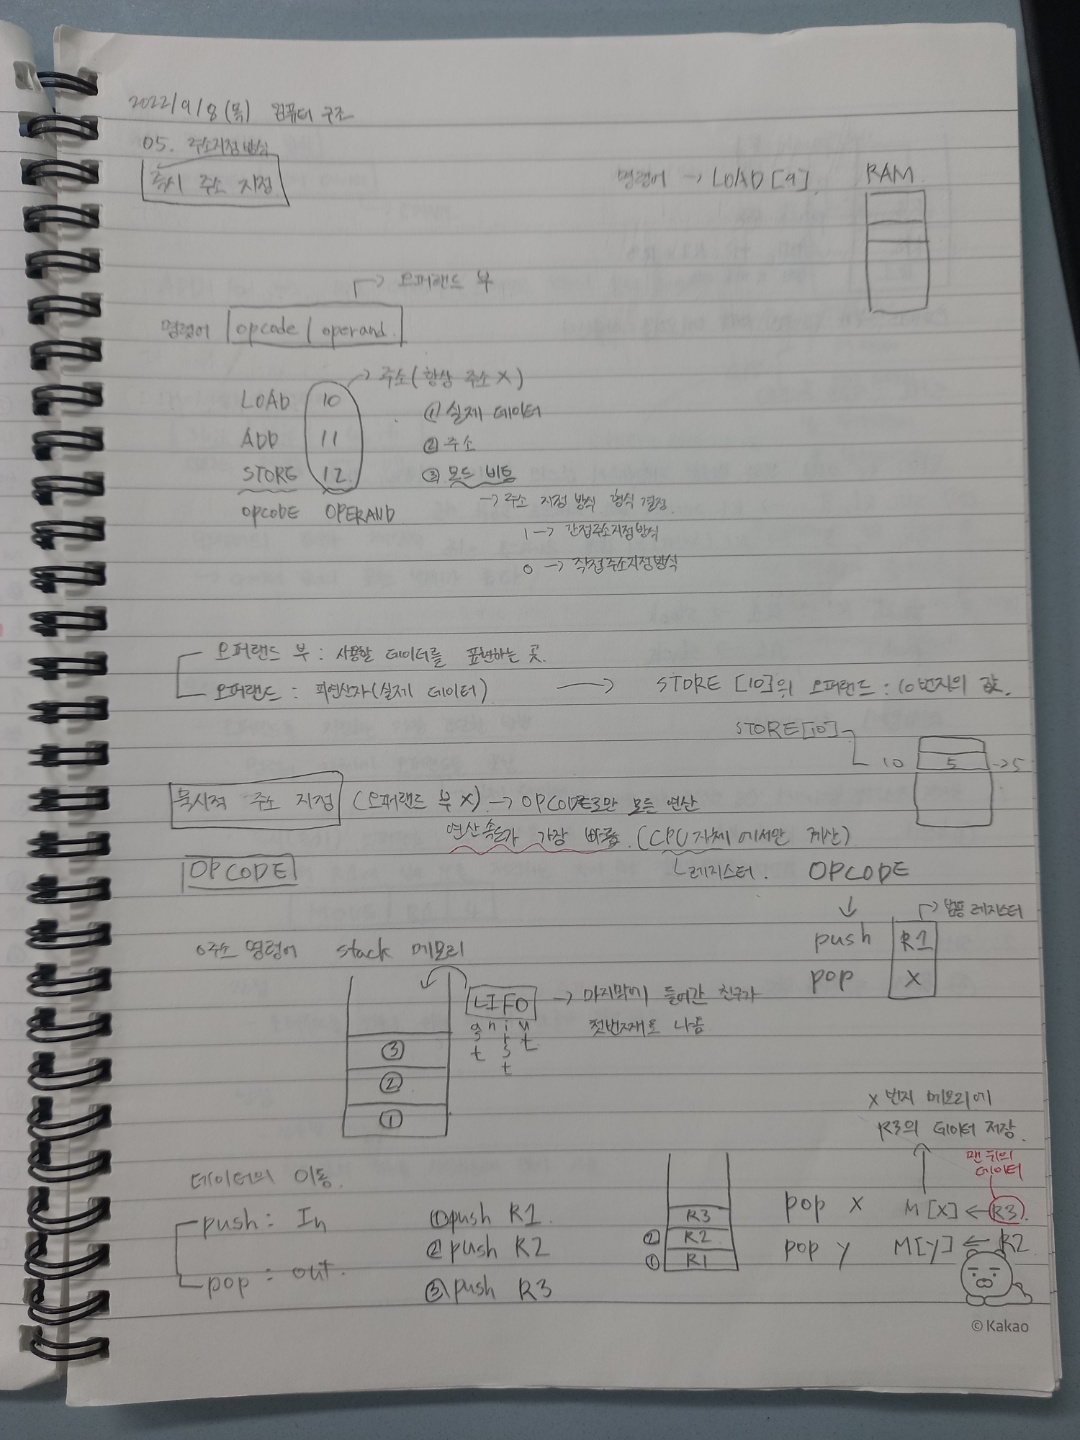 2022/9/8(목) 컴퓨터 구조
05. 주소지정방식
즉시 주소 지정
명령어 → LOAD [9]
RAM
→ 오퍼랜드 부
명령어 opcode / operand
→ 주소(항상 주소 X)
LOAD 10
① 실제 데이터
ADD 11
② 주소
STORE 12
③ 모드 비트
OPCODE OPERAND
→ 주소 지정 방식 형식 결정
1 → 간접주소지정방식
0 → 직접주소지정방식
오퍼랜드 부 : 사용할 데이터를 표현하는 곳.
오퍼랜드 : 피연산자(실제 데이터) → STORE [10]의 오퍼랜드 : 10번지의 값.
STORE[10]
10 5 -25
묵시적 주소 지정 (오퍼랜드 부 X) → OPCODE로만 모든 연산
연산속도가 가장 빠름. (CPU 자체에서만 계산)
레지스터.
OPCODE
OPCODE
→ 범용 레지스터
push R1
pop X
0주소 명령어 stack 메모리
LIFO → 마지막에 들어간 친구가
첫번째로 나옴
ast
n
irst
ut
③
②
①
X 번지 메모리에
R3의 데이터 저장.
맨 뒤의
데이터
데이터의 이동.
push : In
pop : out.
① push R1.
② push R2
③ push R3
R3
② R2
① R1
pop X M[X] ← R3.
pop y M[y] ← R2
© Kakao